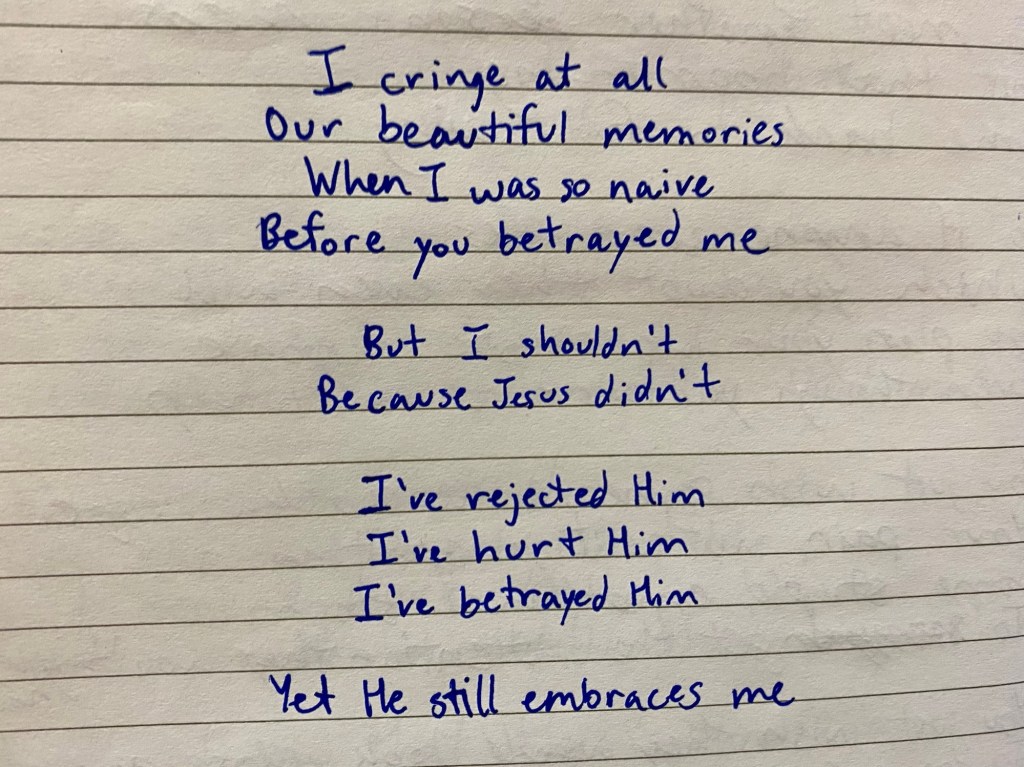 I cringe at all
Our beautiful memories
When I was so naive
Before you betrayed me
But I shouldn't
Because Jesus didn't
I've rejected Him
I've hurt Him
I've betrayed Him
Yet He still embraces me